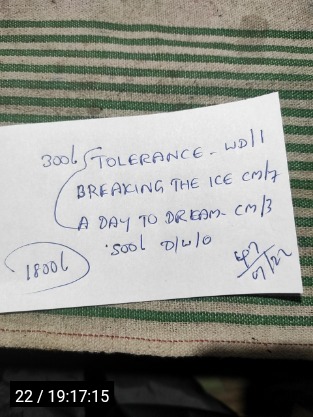 300/- TOLERANCE - WD/1
BREAKING THE ICE CM/7
A DAY TO DREAM - CM/3
500/- O/W/O
1800/-
22 / 19:17:15